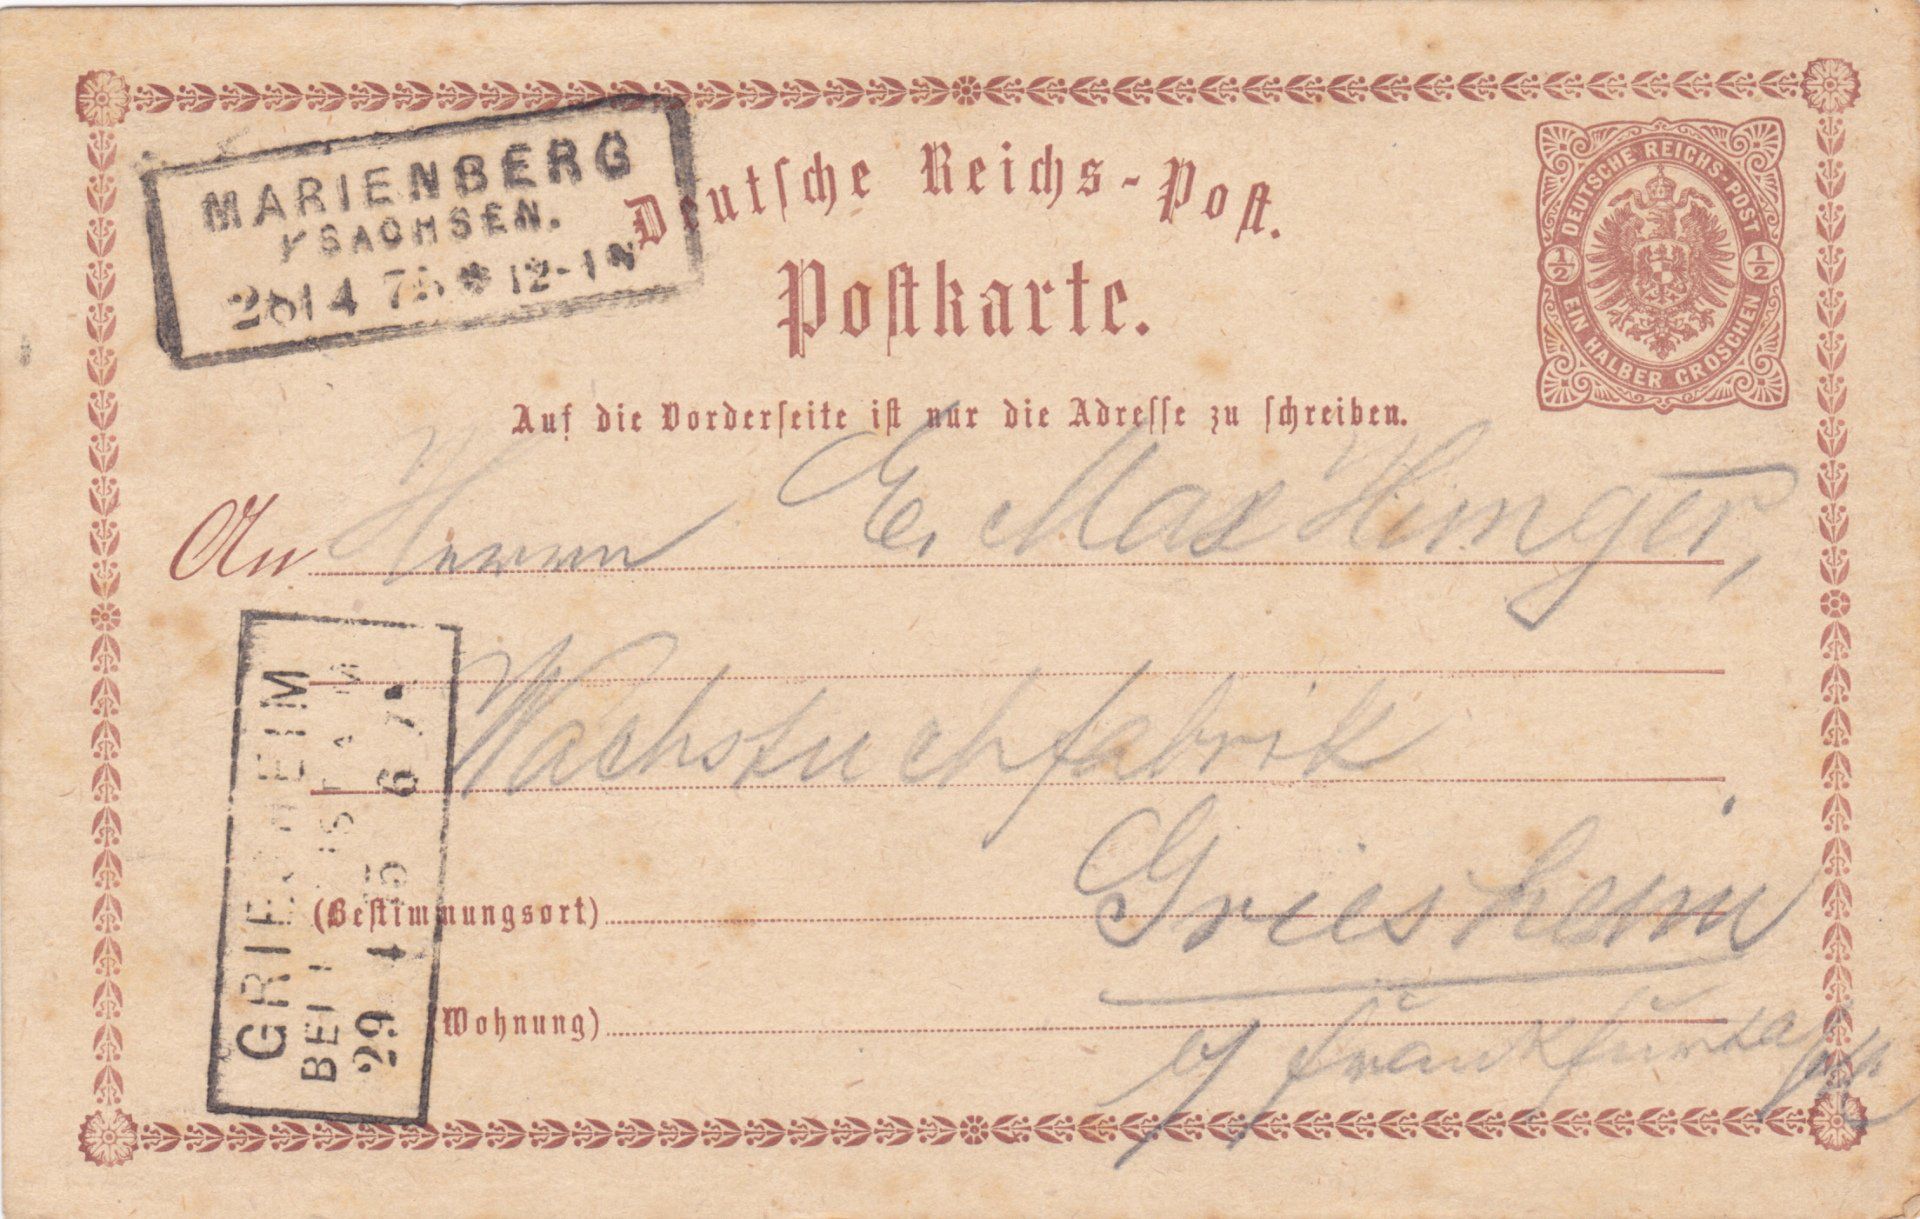 MARIENBERG
SACHSEN.
4 75 * 12-1 N
Deutsche Reichs-Post.
DEUTSCHE REICHS-POST
1/2 1/2
EIN HALBER GROSCHEN
Postkarte.
Auf die Vorderseite ist nur die Adresse zu schreiben.
An Herrn E. Max Himger,
Wachstuchfabrik
GRIESHEIM
BEI
29 4 75 6 7
(Bestimmungsort) Griesheim
(Wohnung) Frankfurt a/M.